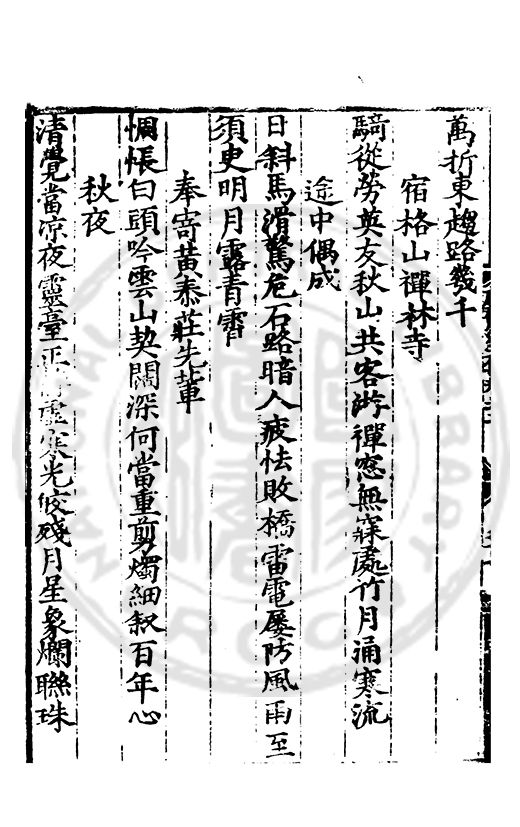 萬折東趨路幾千
宿格山禪林寺
騎從勞英友秋山共客游禪窓無寐處竹月涌寒流
途中偶成
日斜馬滑驚危石路暗人疲怯敗橋雷電屡防風雨至
須史明月露青霄
奉寄黃泰莊先輩
惆悵白頭吟雲山契闊深何當重剪燭細叙百年心
秋夜
清覺當凉夜靈臺正虚寒光皎殘月星象爛聯珠